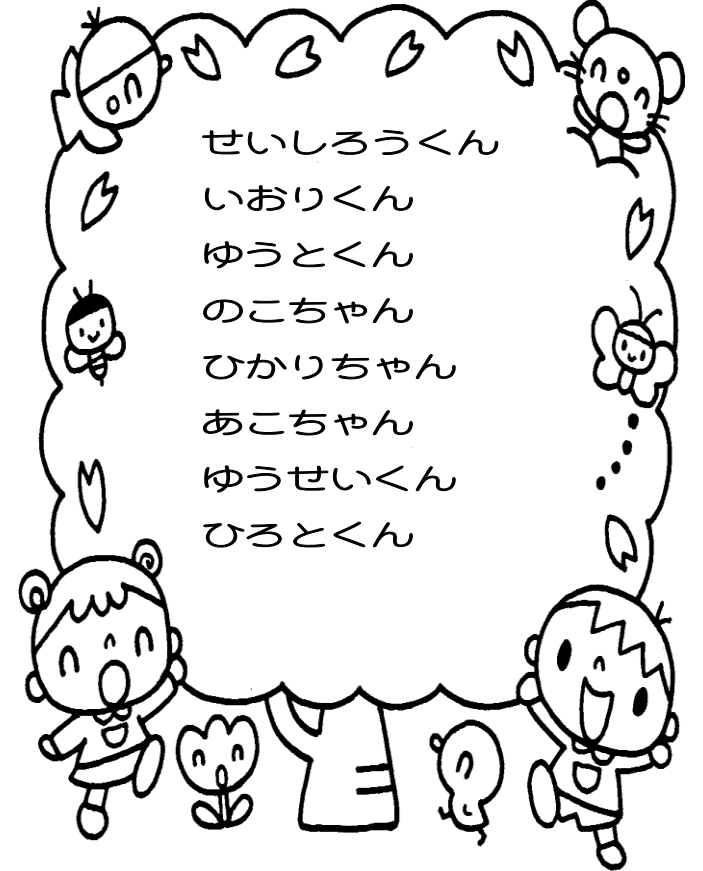 せいしろうくん
いおりくん
ゆうとくん
のこちゃん
ひかりちゃん
あこちゃん
ゆうせいくん
ひろとくん